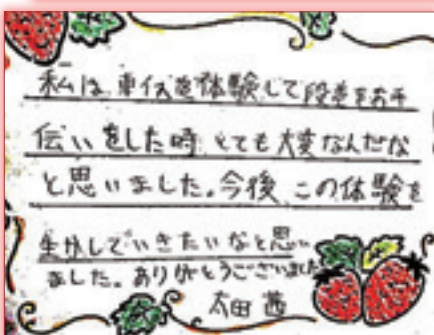 私は車イスを体験して段差をお手
伝いをした時 とても大変なんだな
と思いました。今後 この体験を
生かしていきたいなと思い
ました。ありがとうございました
太田 茜